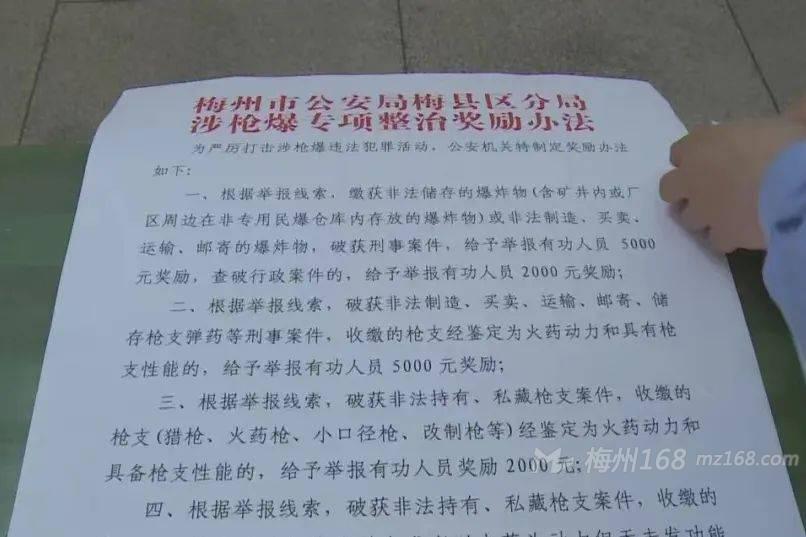 梅州市公安局梅县区分局
涉枪爆专项整治奖励办法
为严厉打击涉枪爆违法犯罪活动，公安机关特制定奖励办法
如下：
一、根据举报线索，缴获非法储存的爆炸物(含矿井内或厂
区周边在非专用民爆仓库内存放的爆炸物)或非法制造、买卖、
运输、邮寄的爆炸物，破获刑事案件，给予举报有功人员 5000
元奖励，查破行政案件的，给予举报有功人员 2000 元奖励；
二、根据举报线索，破获非法制造、买卖、运输、邮寄、储
存枪支弹药等刑事案件，收缴的枪支经鉴定为火药动力和具有枪
支性能的，给予举报有功人员 5000 元奖励；
三、根据举报线索，破获非法持有、私藏枪支案件，收缴的
枪支(猎枪、火药枪、小口径枪、改制枪等)经鉴定为火药动力和
具备枪支性能的，给予举报有功人员奖励 2000 元；
梅州168 mz168.com
四、根据举报线索，破获非法持有、私藏枪支案件，收缴的